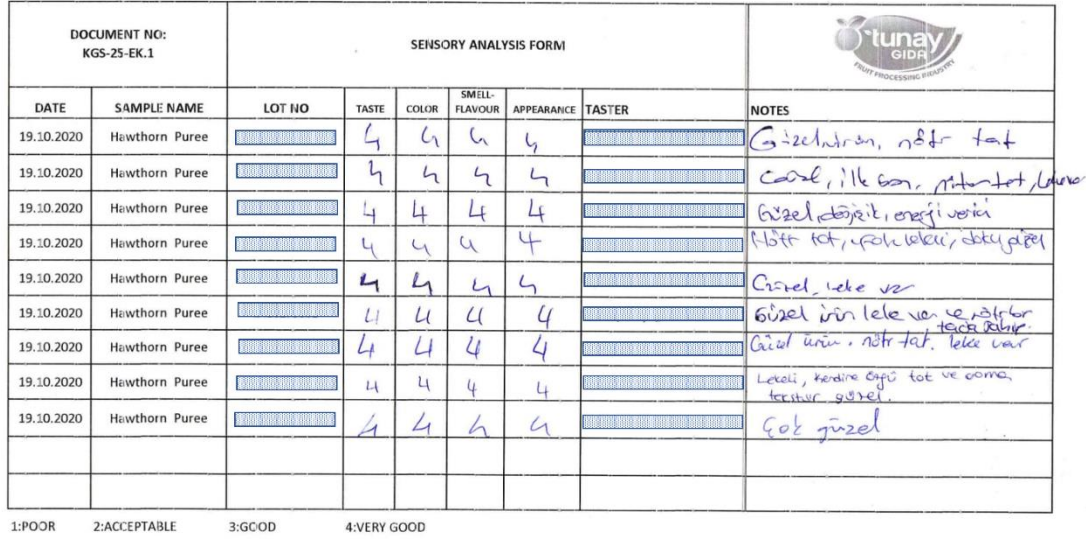 DOCUMENT NO:
KGS-25-EK.1
SENSORY ANALYSIS FORM
tunay
GIDA
FRUIT PROCESSING INDUSTRY
DATE SAMPLE NAME LOT NO TASTE COLOR SMELL-FLAVOUR APPEARANCE TASTER NOTES
19.10.2020 Hawthorn Puree 4 4 4 4 Güzel ürün, nötr tat
19.10.2020 Hawthorn Puree 4 4 4 4 Güzel, nötr tat,
19.10.2020 Hawthorn Puree 4 4 4 4 Güzel, değişik, enerji verici
19.10.2020 Hawthorn Puree 4 4 4 4 Nötr tat, lekeli, doku güzel
19.10.2020 Hawthorn Puree 4 4 4 4 Güzel, leke var
19.10.2020 Hawthorn Puree 4 4 4 4 Güzel ürün leke var ve
tada sahip.
19.10.2020 Hawthorn Puree 4 4 4 4 Güzel ürün, nötr tat. leke var
19.10.2020 Hawthorn Puree 4 4 4 4 Lekeli, kendine özgü tat ve aroma,
tekstür güzel.
19.10.2020 Hawthorn Puree 4 4 4 4 Çok güzel
1:POOR 2:ACCEPTABLE 3:GOOD 4:VERY GOOD